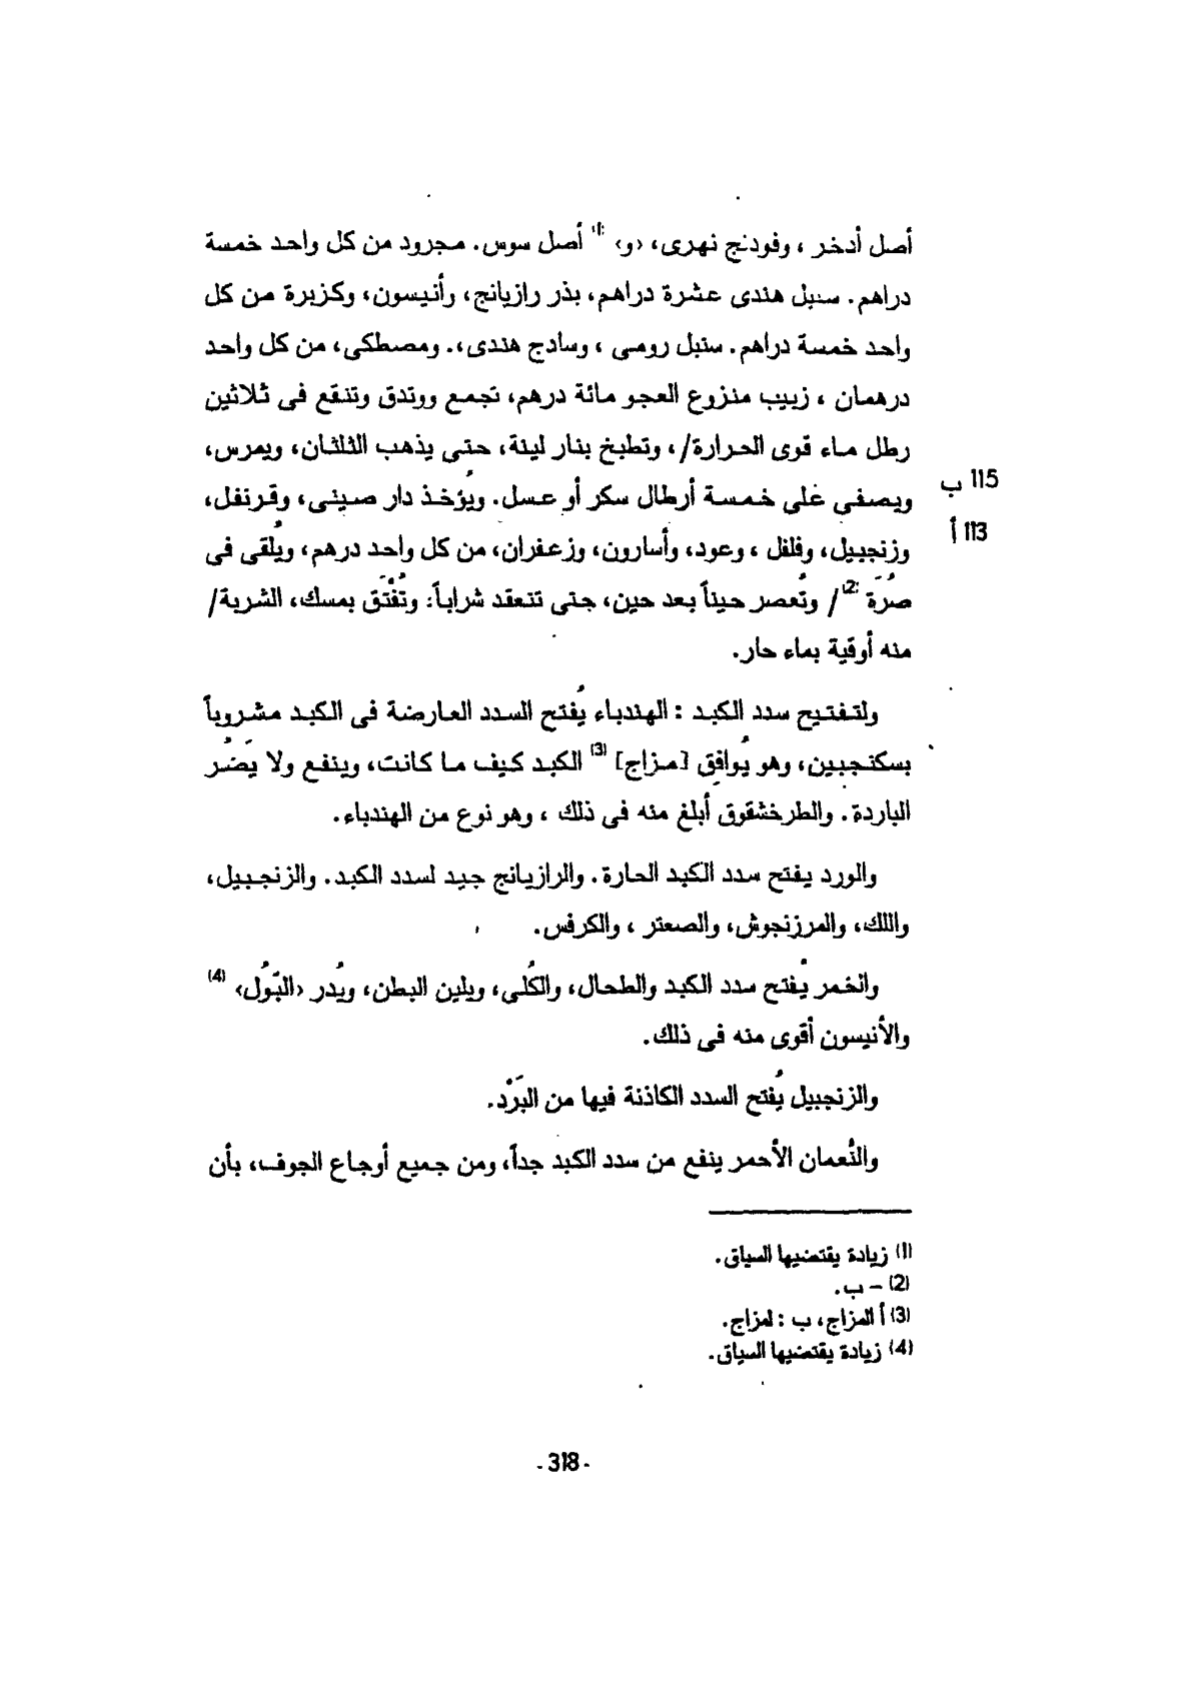 أصل أدخر ، وفودنج نهرى، ‹و› (1) أصل سوس. مجرود من كل واحد خمسة
دراهم. سنبل هندى عشرة دراهم، بذر رازيانج، وأنيسون، وكزبرة من كل
واحد خمسة دراهم. سنبل رومى ، وسادج هندى،. ومصطكى، من كل واحد
درهمان ، زبيب منزوع العجو مائة درهم، تجمع ووتدق وتنقع فى ثلاثين
رطل ماء قوى الحرارة/، وتطبخ بنار لينة، حتى يذهب الثلثان، ويمرس،
ويصفى على خمسة أرطال سكر أو عسل. ويُؤخذ دار صينى، وقرنفل،
115 ب
وزنجبيل، وفلفل ، وعود، وأسارون، وزعفران، من كل واحد درهم، ويُلقى فى
113 أ
صُرَة (2) / وتُعصر حيناً بعد حين، حتى تنعقد شراباً: وتُفْتَق بمسك، الشربة/
منه أوقية بماء حار.
ولتفتيح سدد الكبد : الهندباء يُفتح السدد العارضة فى الكبد مشروباً
بسكنجبين، وهو يُوافق [مزاج] (3) الكبد كيف ما كانت، وينفع ولا يَضُر
الباردة. والطرخشقوق أبلغ منه فى ذلك ، وهو نوع من الهندباء.
والورد يفتح سدد الكبد الحارة. والرازيانج جيد لسدد الكبد. والزنجبيل،
واللك، والمرزنجوش، والصعتر ، والكرفس.
والخمر يُفتح سدد الكبد والطحال، والكُلى، ويلين البطن، ويُدر ‹البَوُل› (4)
والأنيسون أقوى منه فى ذلك.
والزنجبيل يُفتح السدد الكاذنة فيها من البَرْد.
والنُعمان الأحمر ينفع من سدد الكبد جداً، ومن جميع أوجاع الجوف، بأن
(1) زيادة يقتضيها السياق.
(2) – ب.
(3) أ المزاج، ب : لمزاج.
(4) زيادة يقتضيها السياق.
- 318 -